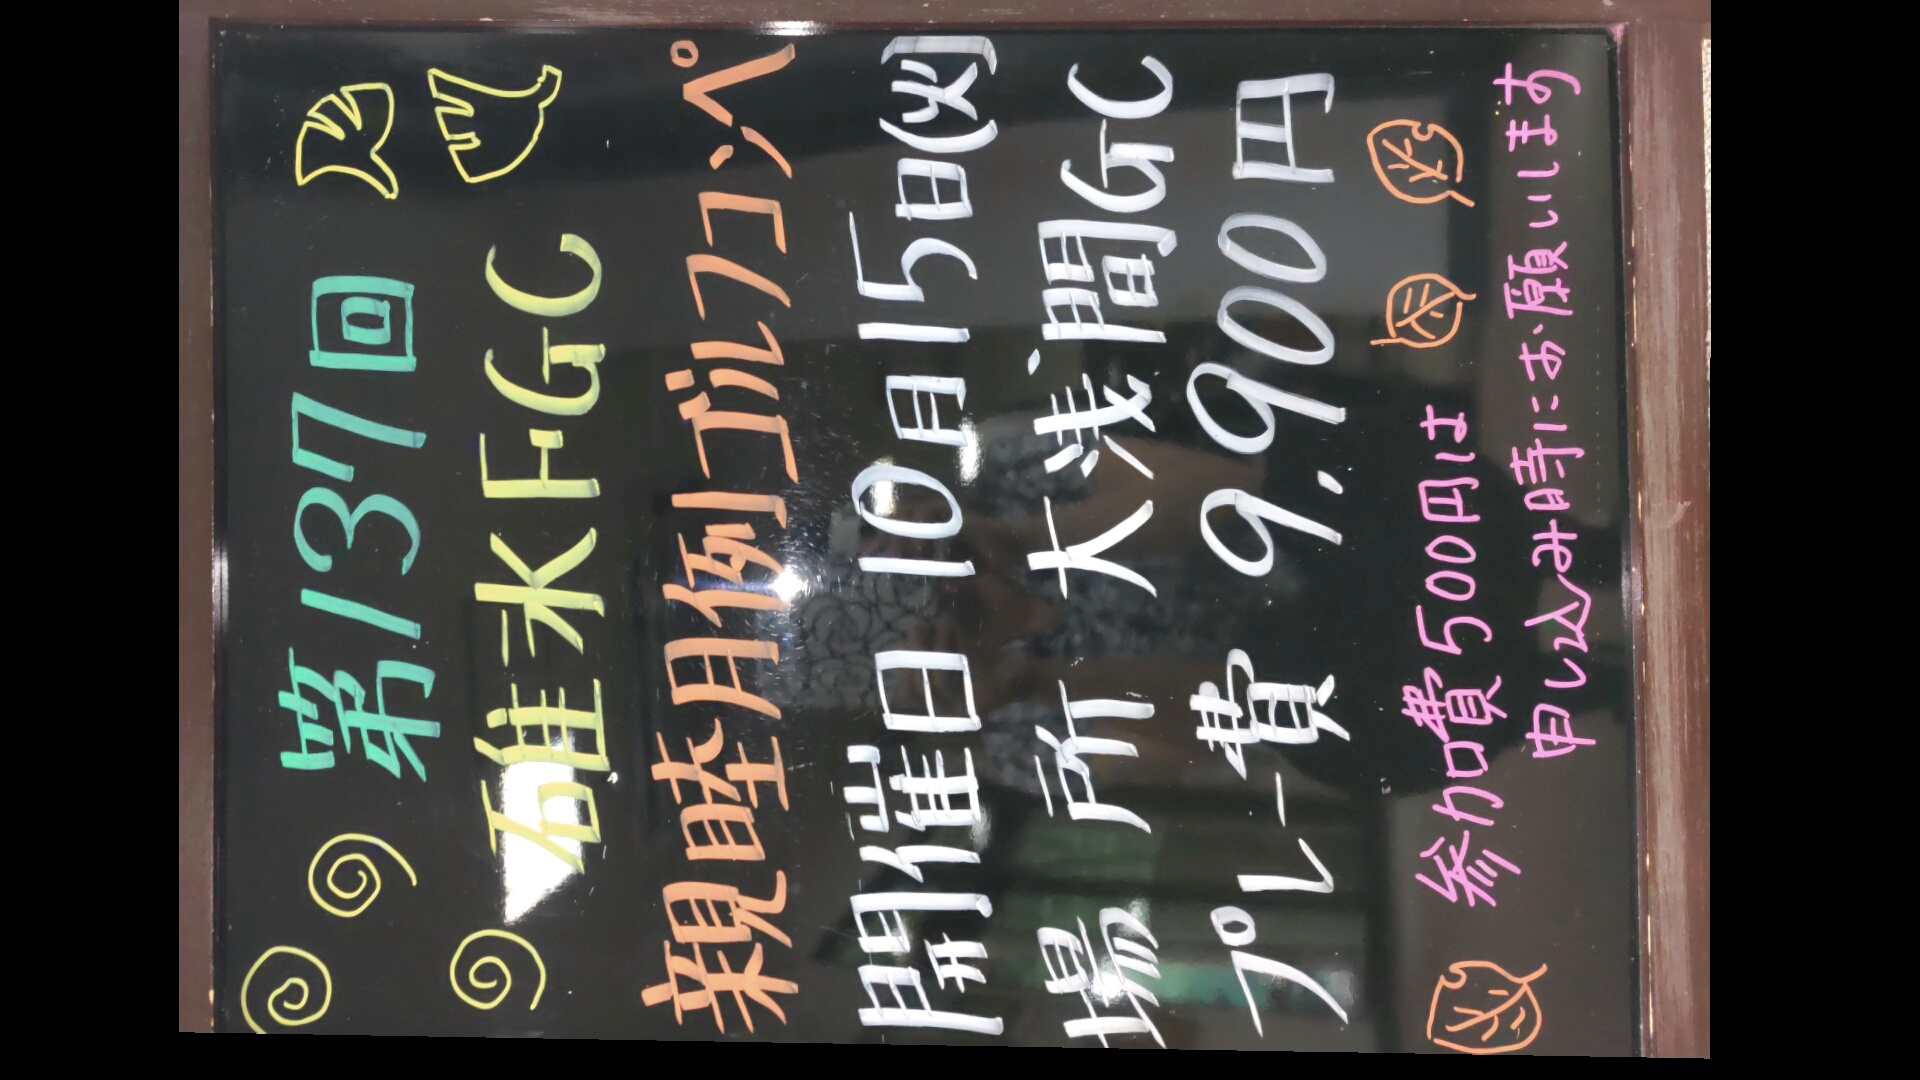 第137回
碓氷FGC
親睦月例ゴルフコンペ
開催日 10月15日(火)
場所 大浅間GC
プレー費 9,900円
参加費500円は
申し込み時にお願いします